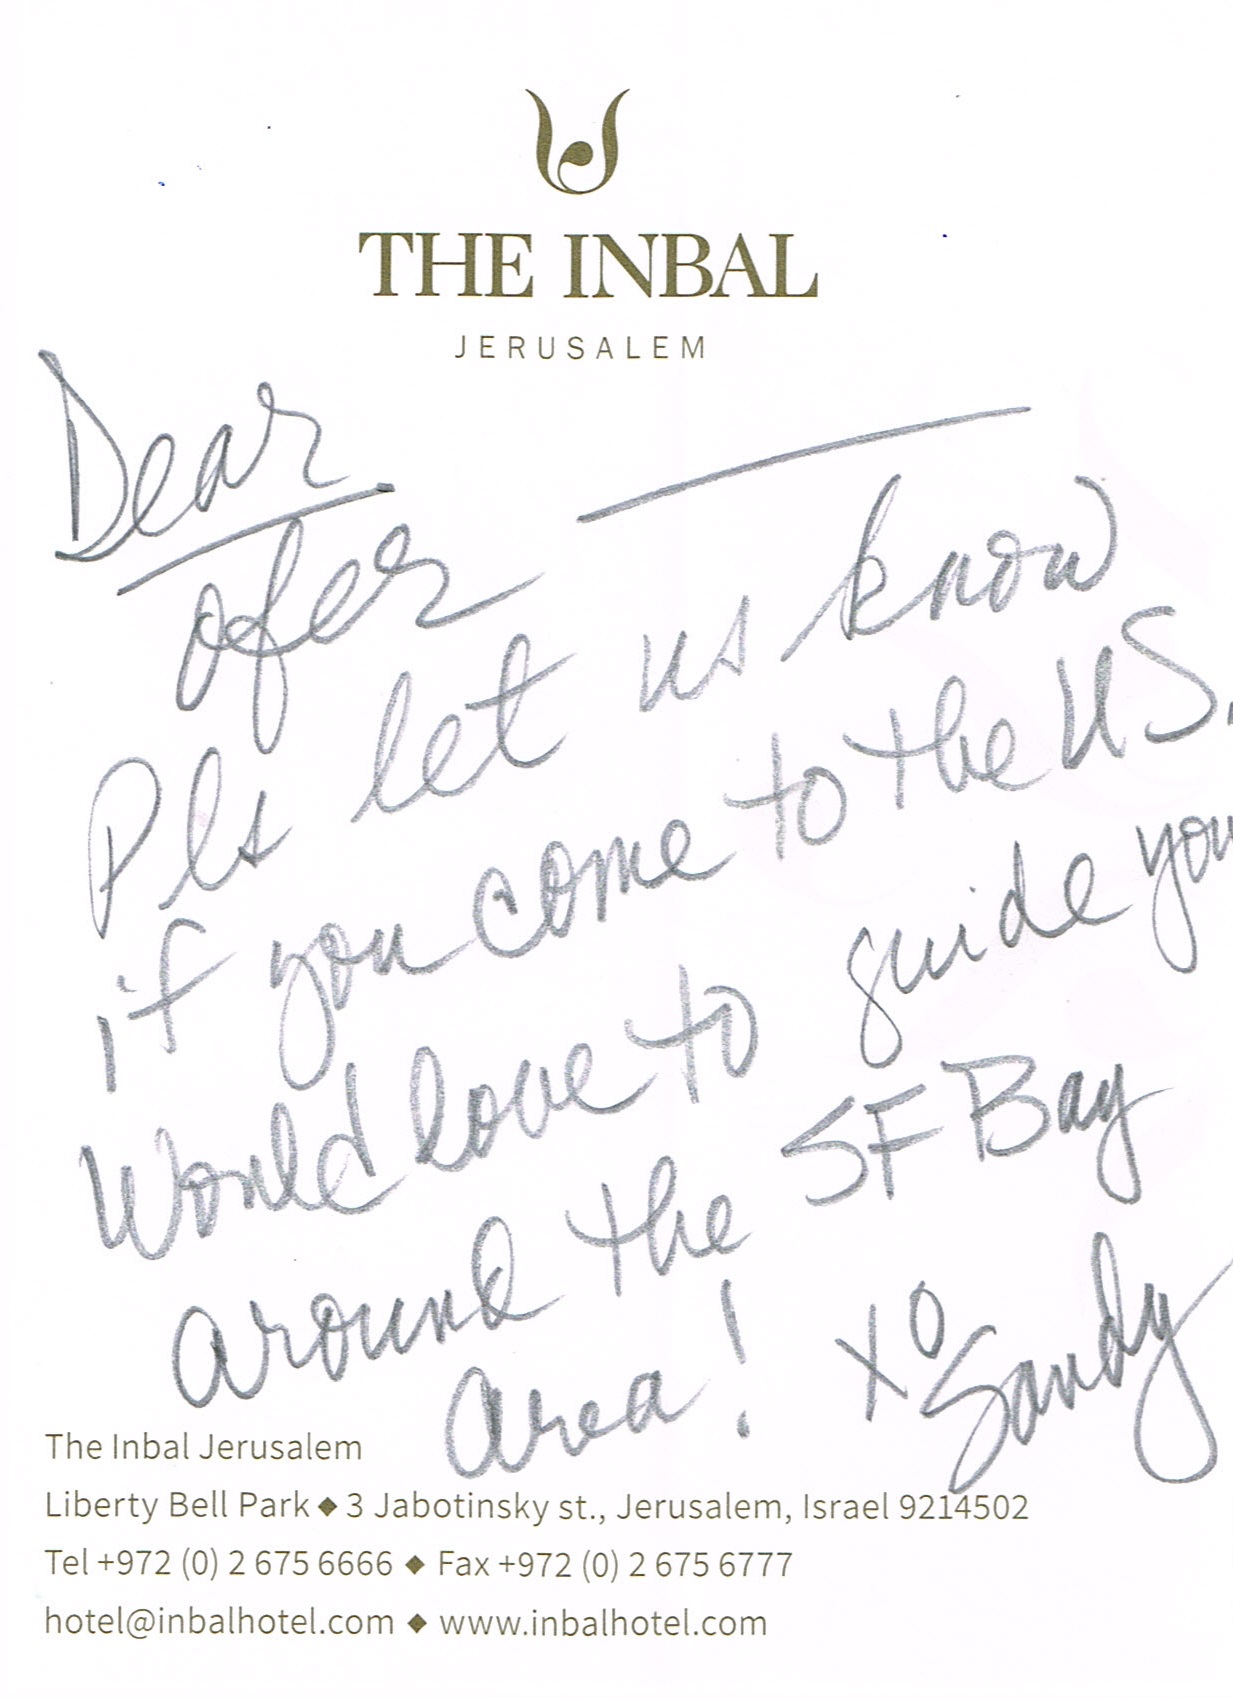 THE INBAL
JERUSALEM
Dear
Ofer
Pls let us know
if you come to the US.
Would love to guide you
around the SF Bay
area!
XO
Sandy
The Inbal Jerusalem
Liberty Bell Park ◆ 3 Jabotinsky st., Jerusalem, Israel 9214502
Tel +972 (0) 2 675 6666 ◆ Fax +972 (0) 2 675 6777
hotel@inbalhotel.com ◆ www.inbalhotel.com